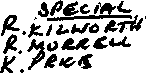 SPECIAL
R. KILWORTH
R. MORRELL
K. PIKE